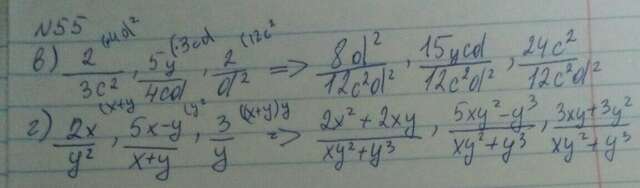 №55
в) 2/3c² (·4d², 5y/4cd (·3cd, 2/d² (12c² => 8d²/12c²d², 15ycd/12c²d², 24c²/12c²d²
г) 2x/y² (x+y, 5x-y/x+y (y², 3/y (x+y)y => 2x²+2xy/xy²+y³, 5xy²-y³/xy²+y³, 3xy+3y²/xy²+y³